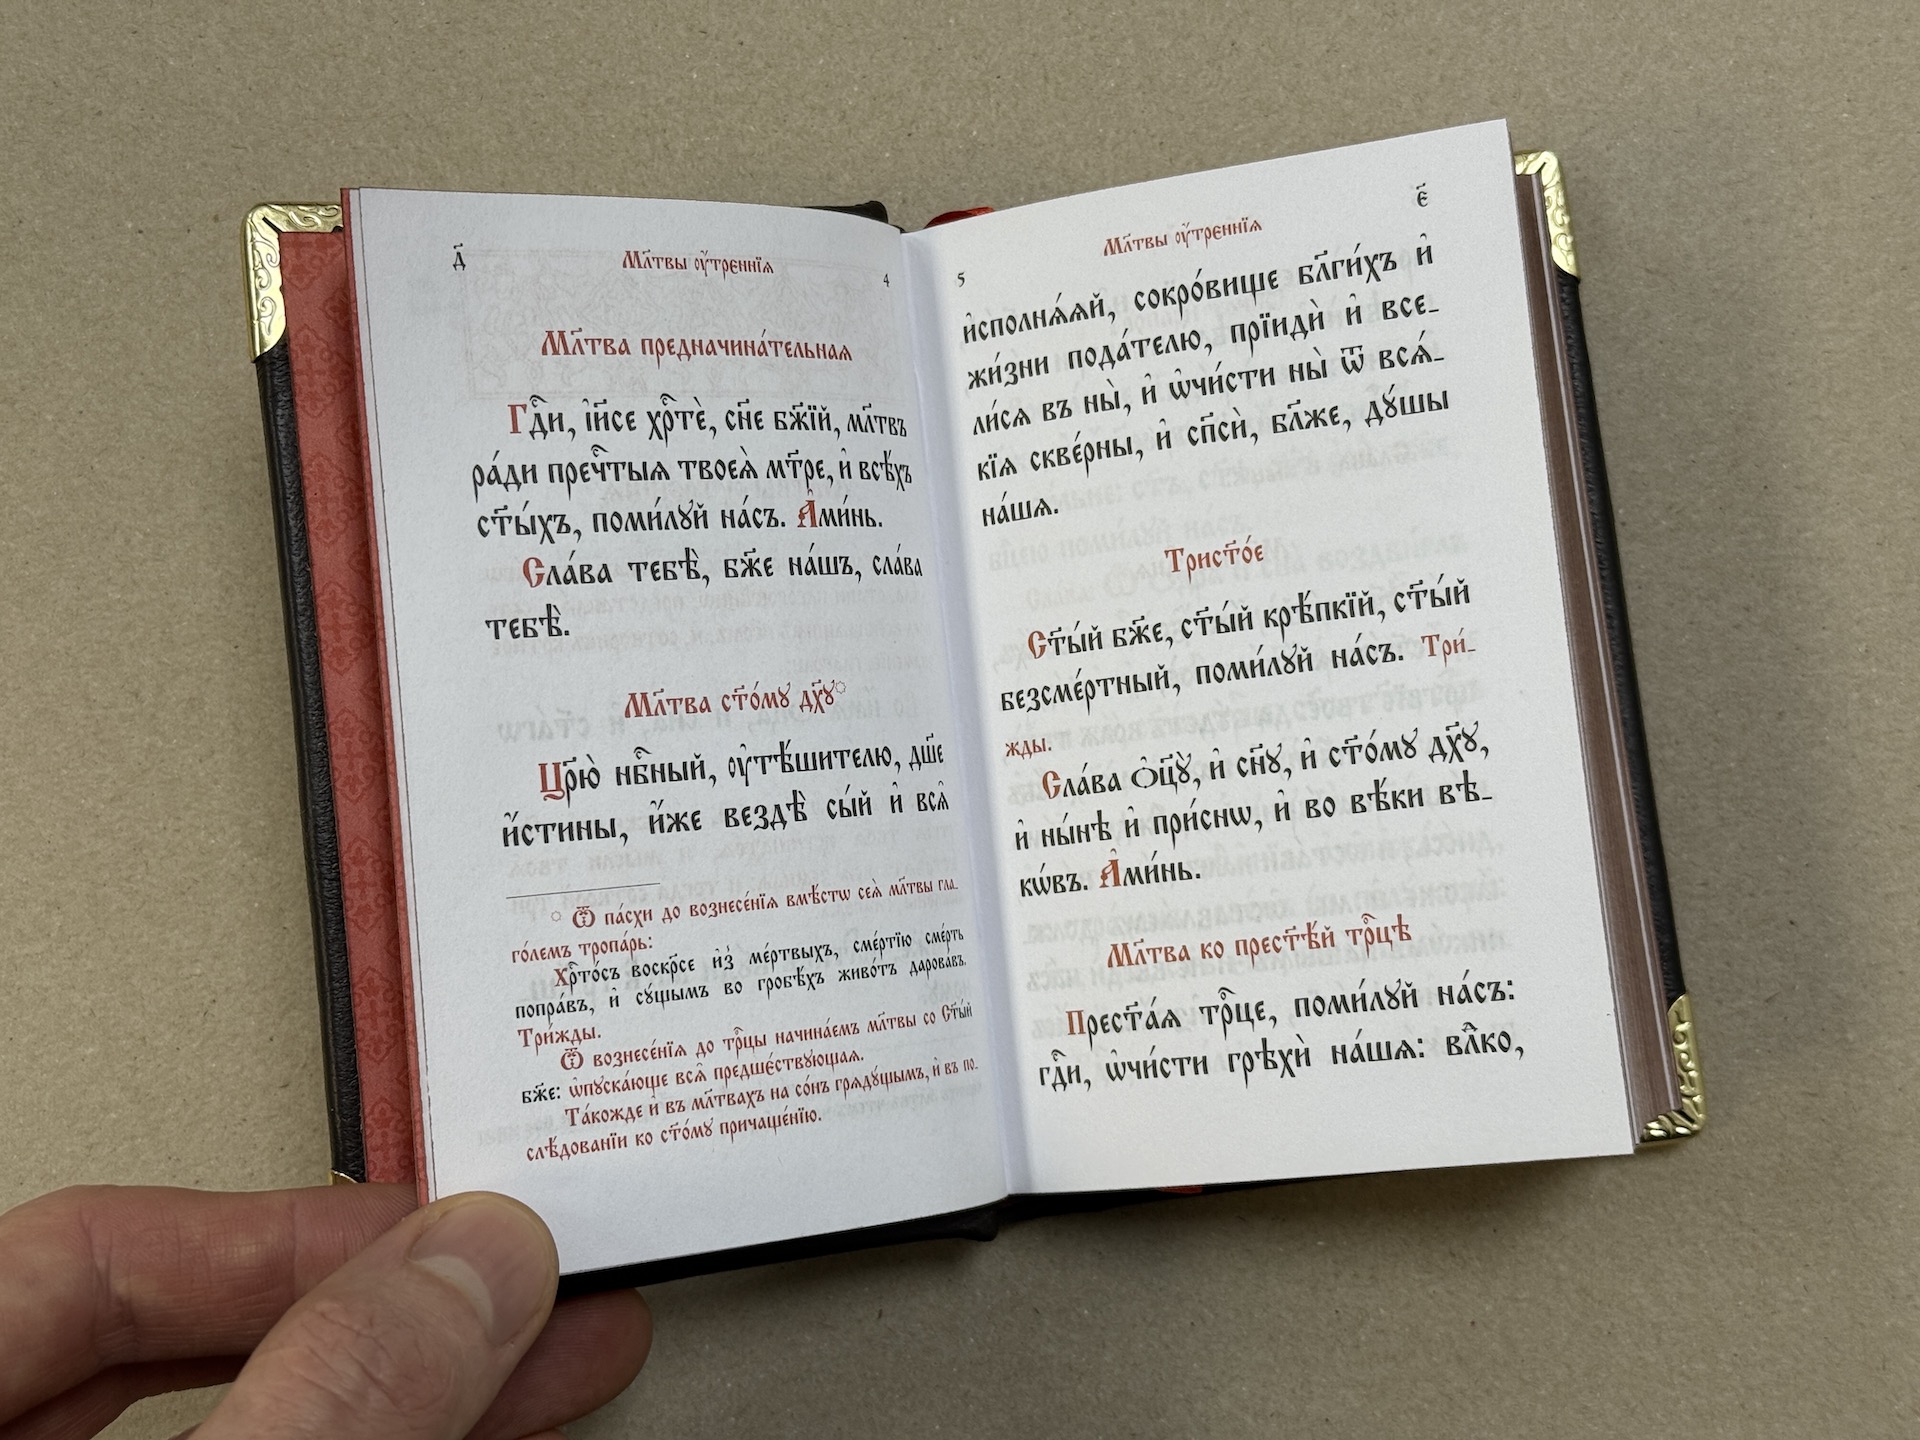 д҃
Мл҃твы ᲂу҆́треннїѧ
4
Мл҃тва предначина́тельнаѧ
Гдⷭ҇и, і҆и҃се хрⷭ҇тѐ, сн҃е бж҃їй, мл҃твъ
ра́ди пречⷭ҇тыѧ твоеѧ̀ мт҃ре, и҆ всѣ́хъ
ст҃ы́хъ, поми́лꙋй на́съ. А҆ми́нь.
Сла́ва тебѣ̀, бж҃е на́шъ, сла́ва
тебѣ̀.
Мл҃тва ст҃о́мꙋ дх҃ꙋ
Цр҃ю̀ нбⷭ҇ный, ᲂу҆тѣ́шителю, дш҃е
и҆́стины, и҆́же вездѣ̀ сы́й и҆ всѧ̑
Ѿ па́схи до вознесе́нїѧ вмѣ́стѡ сеѧ̀ мл҃твы гла-
го́лемъ тропа́рь:
Хрⷭ҇то́съ воскр҃се и҆з̾ ме́ртвыхъ, сме́ртїю сме́рть
попра́въ, и҆ сꙋ́щымъ во гробѣ́хъ живо́тъ дарова́въ.
Три́жды.
Ѿ вознесе́нїѧ до трⷪ҇цы начина́емъ мл҃твы со Ст҃ы́й
бж҃е: ѡ҆пꙋска́юще всѧ̑ предше́ствꙋющаѧ.
Та́кожде и҆ въ мл҃твахъ на со́нъ грѧдꙋ́щымъ, и҆ въ по-
слѣ́дованїи ко ст҃о́мꙋ причаще́нїю.
5
Мл҃твы ᲂу҆́треннїѧ
є҃
и҆сполнѧ́ѧй, сокро́вище бл҃ги́хъ и҆
жи́зни пода́телю, прїидѝ и҆ все-
ли́сѧ въ ны̀, и҆ ѡ҆чи́сти ны̀ ѿ всѧ́-
кїѧ скве́рны, и҆ сп҃сѝ, бл҃же, дꙋ́шы
на́шѧ.
Трист҃о́е
Ст҃ы́й бж҃е, ст҃ы́й крѣ́пкїй, ст҃ы́й
безсме́ртный, поми́лꙋй на́съ. Три́-
жды.
Сла́ва ѻ҆ц҃ꙋ̀, и҆ сн҃ꙋ, и҆ ст҃о́мꙋ дх҃ꙋ,
и҆ ны́нѣ и҆ при́снѡ, и҆ во вѣ́ки вѣ-
кѡ́въ. А҆ми́нь.
Мл҃тва ко прест҃ѣ́й трⷪ҇цѣ
Прест҃а́ѧ трⷪ҇це, поми́лꙋй на́съ:
гдⷭ҇и, ѡ҆чи́сти грѣхѝ на́шѧ: влⷣко,